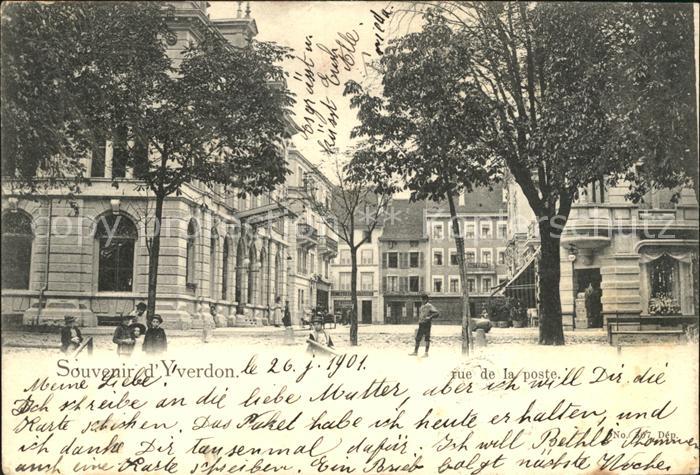 ergrüsst u
küsst Euch
Alle
Frieda.
Copyright
Souvenir d'Yverdon. le 26. j. 1901.
rue de la poste.
Meine Liebe!
Ich schreibe an die liebe Mutter, aber ich will Dir die
Karte schicken. Das Paket habe ich heute erhalten, und
No. 807 Dép.
ich danke Dir tausenmal dafür. Ich will Bethli
auch eine Karte schreiben. Ein Brieb bolgt nächste Woche.